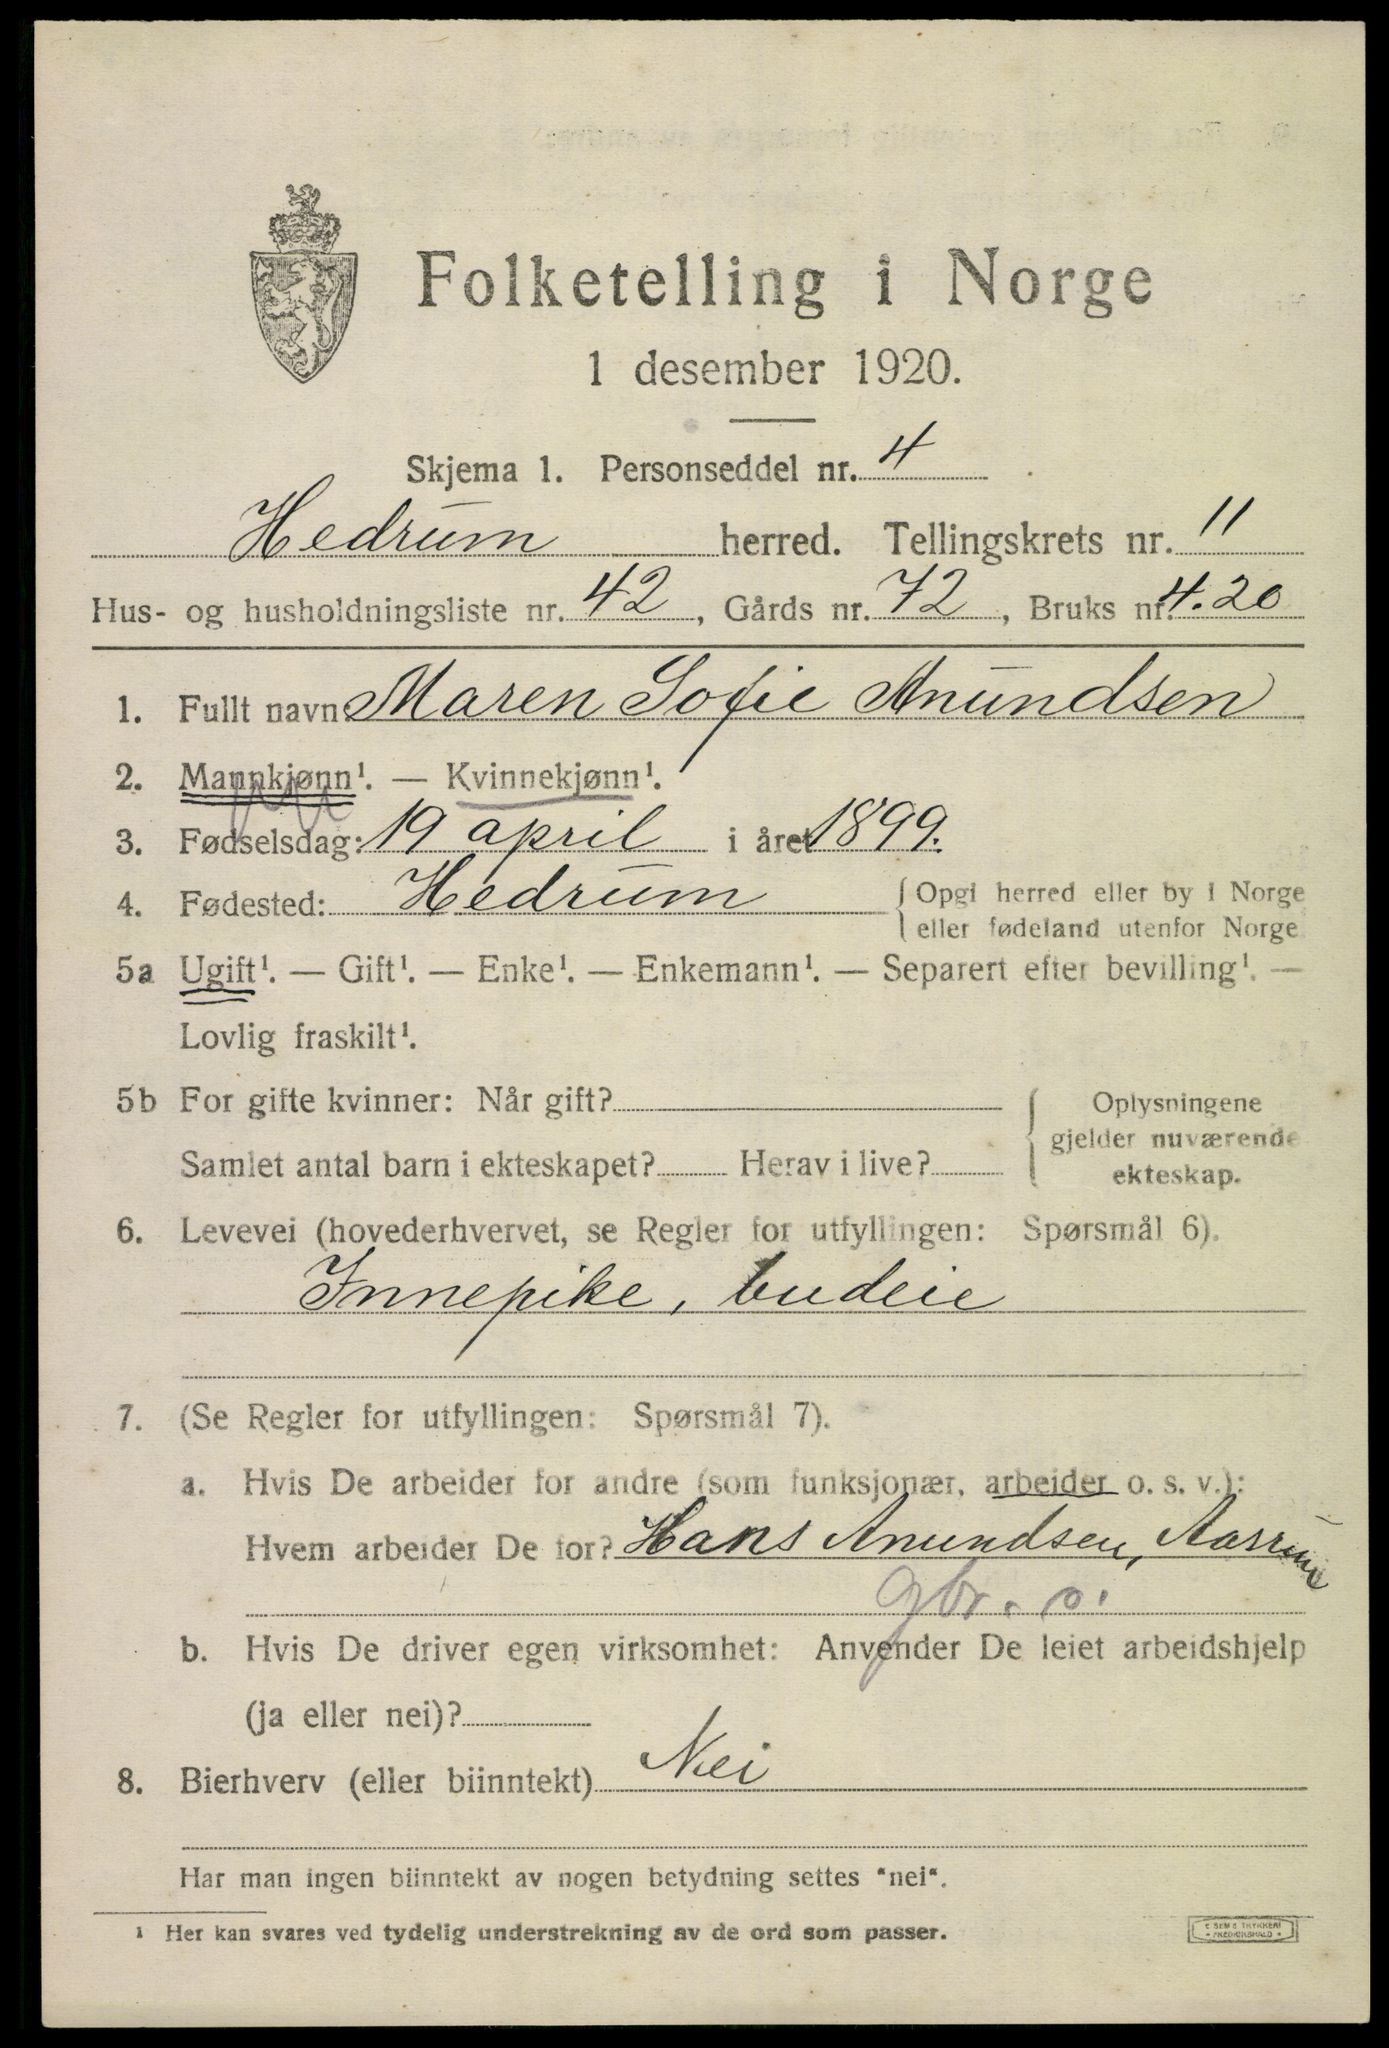 Folketelling i Norge
1 desember 1920.
Skjema 1. Personseddel nr. 4
Hedrum herred. Tellingskrets nr. 11
Hus- og husholdningsliste nr. 42, Gårds nr. 72, Bruks nr. 4.20
1. Fullt navn Maren Sofie Anundsen
2. Mannkjønn¹. — Kvinnekjønn¹.
3. Fødselsdag: 19 april i året 1899.
4. Fødested: Hedrum { Opgi herred eller by i Norge
eller fødeland utenfor Norge
5a Ugift¹. — Gift¹. — Enke¹. — Enkemann¹. — Separert efter bevilling¹. —
Lovlig fraskilt¹.
5b For gifte kvinner: Når gift? { Oplysningene
gjelder nuværende
Samlet antal barn i ekteskapet? Herav i live? ekteskap.
6. Levevei (hovederhvervet, se Regler for utfyllingen: Spørsmål 6).
Innepike, budeie
7. (Se Regler for utfyllingen: Spørsmål 7).
a. Hvis De arbeider for andre (som funksjonær, arbeider o. s. v.):
Hvem arbeider De for? Hans Anundsen,
gbr. o.
b. Hvis De driver egen virksomhet: Anvender De leiet arbeidshjelp
(ja eller nei)?
8. Bierhverv (eller biinntekt) Nei
Har man ingen biinntekt av nogen betydning settes "nei".
¹ Her kan svares ved tydelig understrekning av de ord som passer.